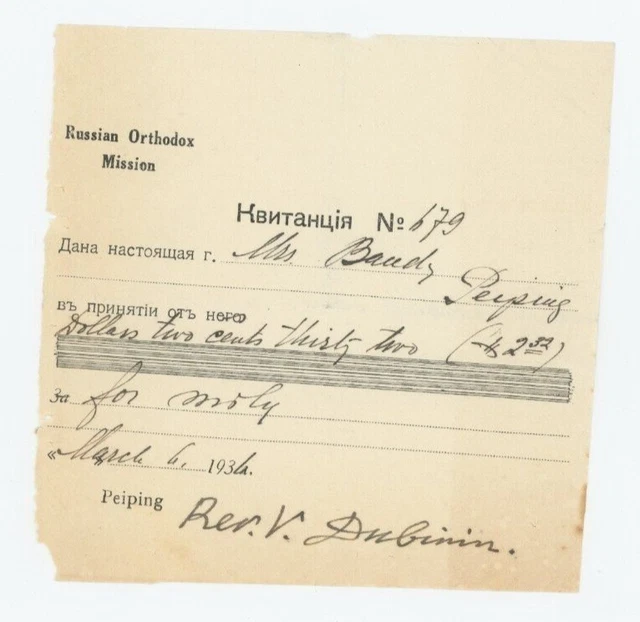 Russian Orthodox
Mission
Квитанція № 679
Дана настоящая г. Mrs Baudy
Peiping
въ принятіи отъ него
Dollars two cents thirty two ($ 2.32)
за for
«March 6. 1936.
Peiping
Rev. V. Dubinin.